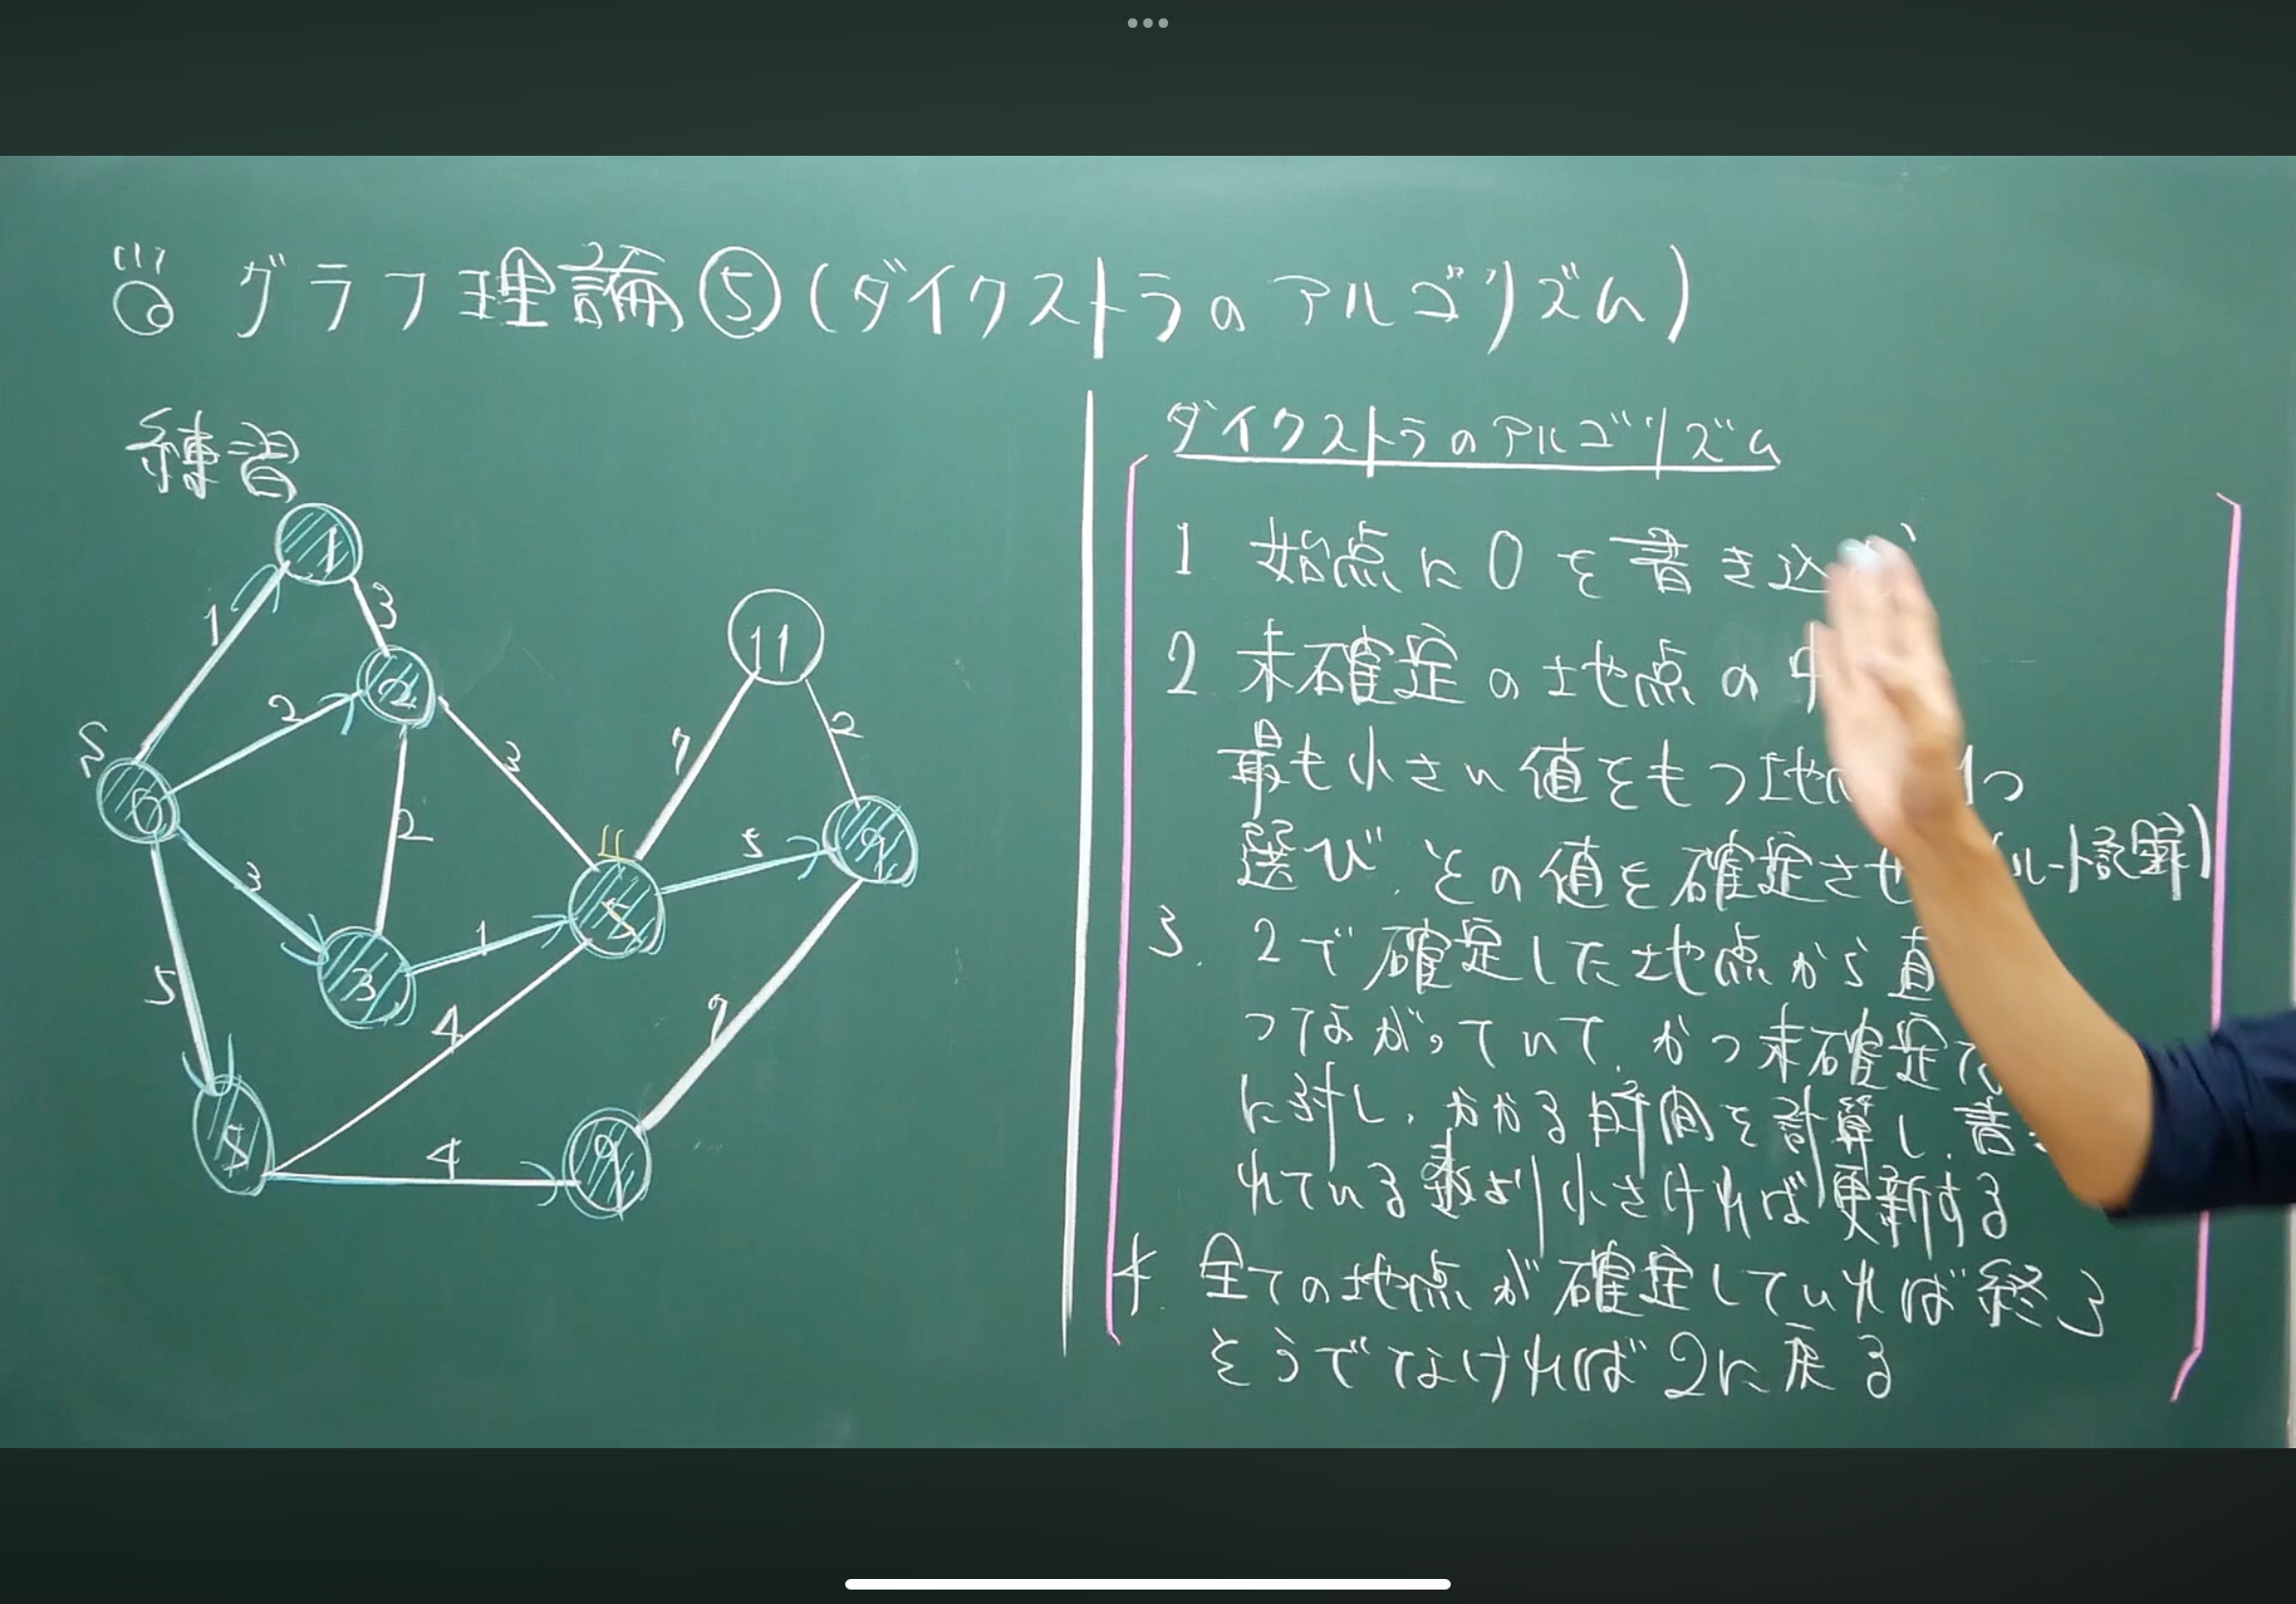 グラフ理論⑤(ダイクストラのアルゴリズム)
練習
1
1
3
2
2
11
S
0
2
3
7
2
3
4
5
9
5
3
1
5
4
9
5
4
9
ダイクストラのアルゴリズム
1 始点に0を書き込
2 未確定の地点の
最も小さい値をもつ地 1つ
選び、その値を確定させ ルート記録)
3. 2で確定した地点から直
つながっていて、かつ未確定
に対し、かかる時間を計算し、書
れている数より小さければ更新する
4. 全ての地点が確定していれば終了
そうでなければ2に戻る